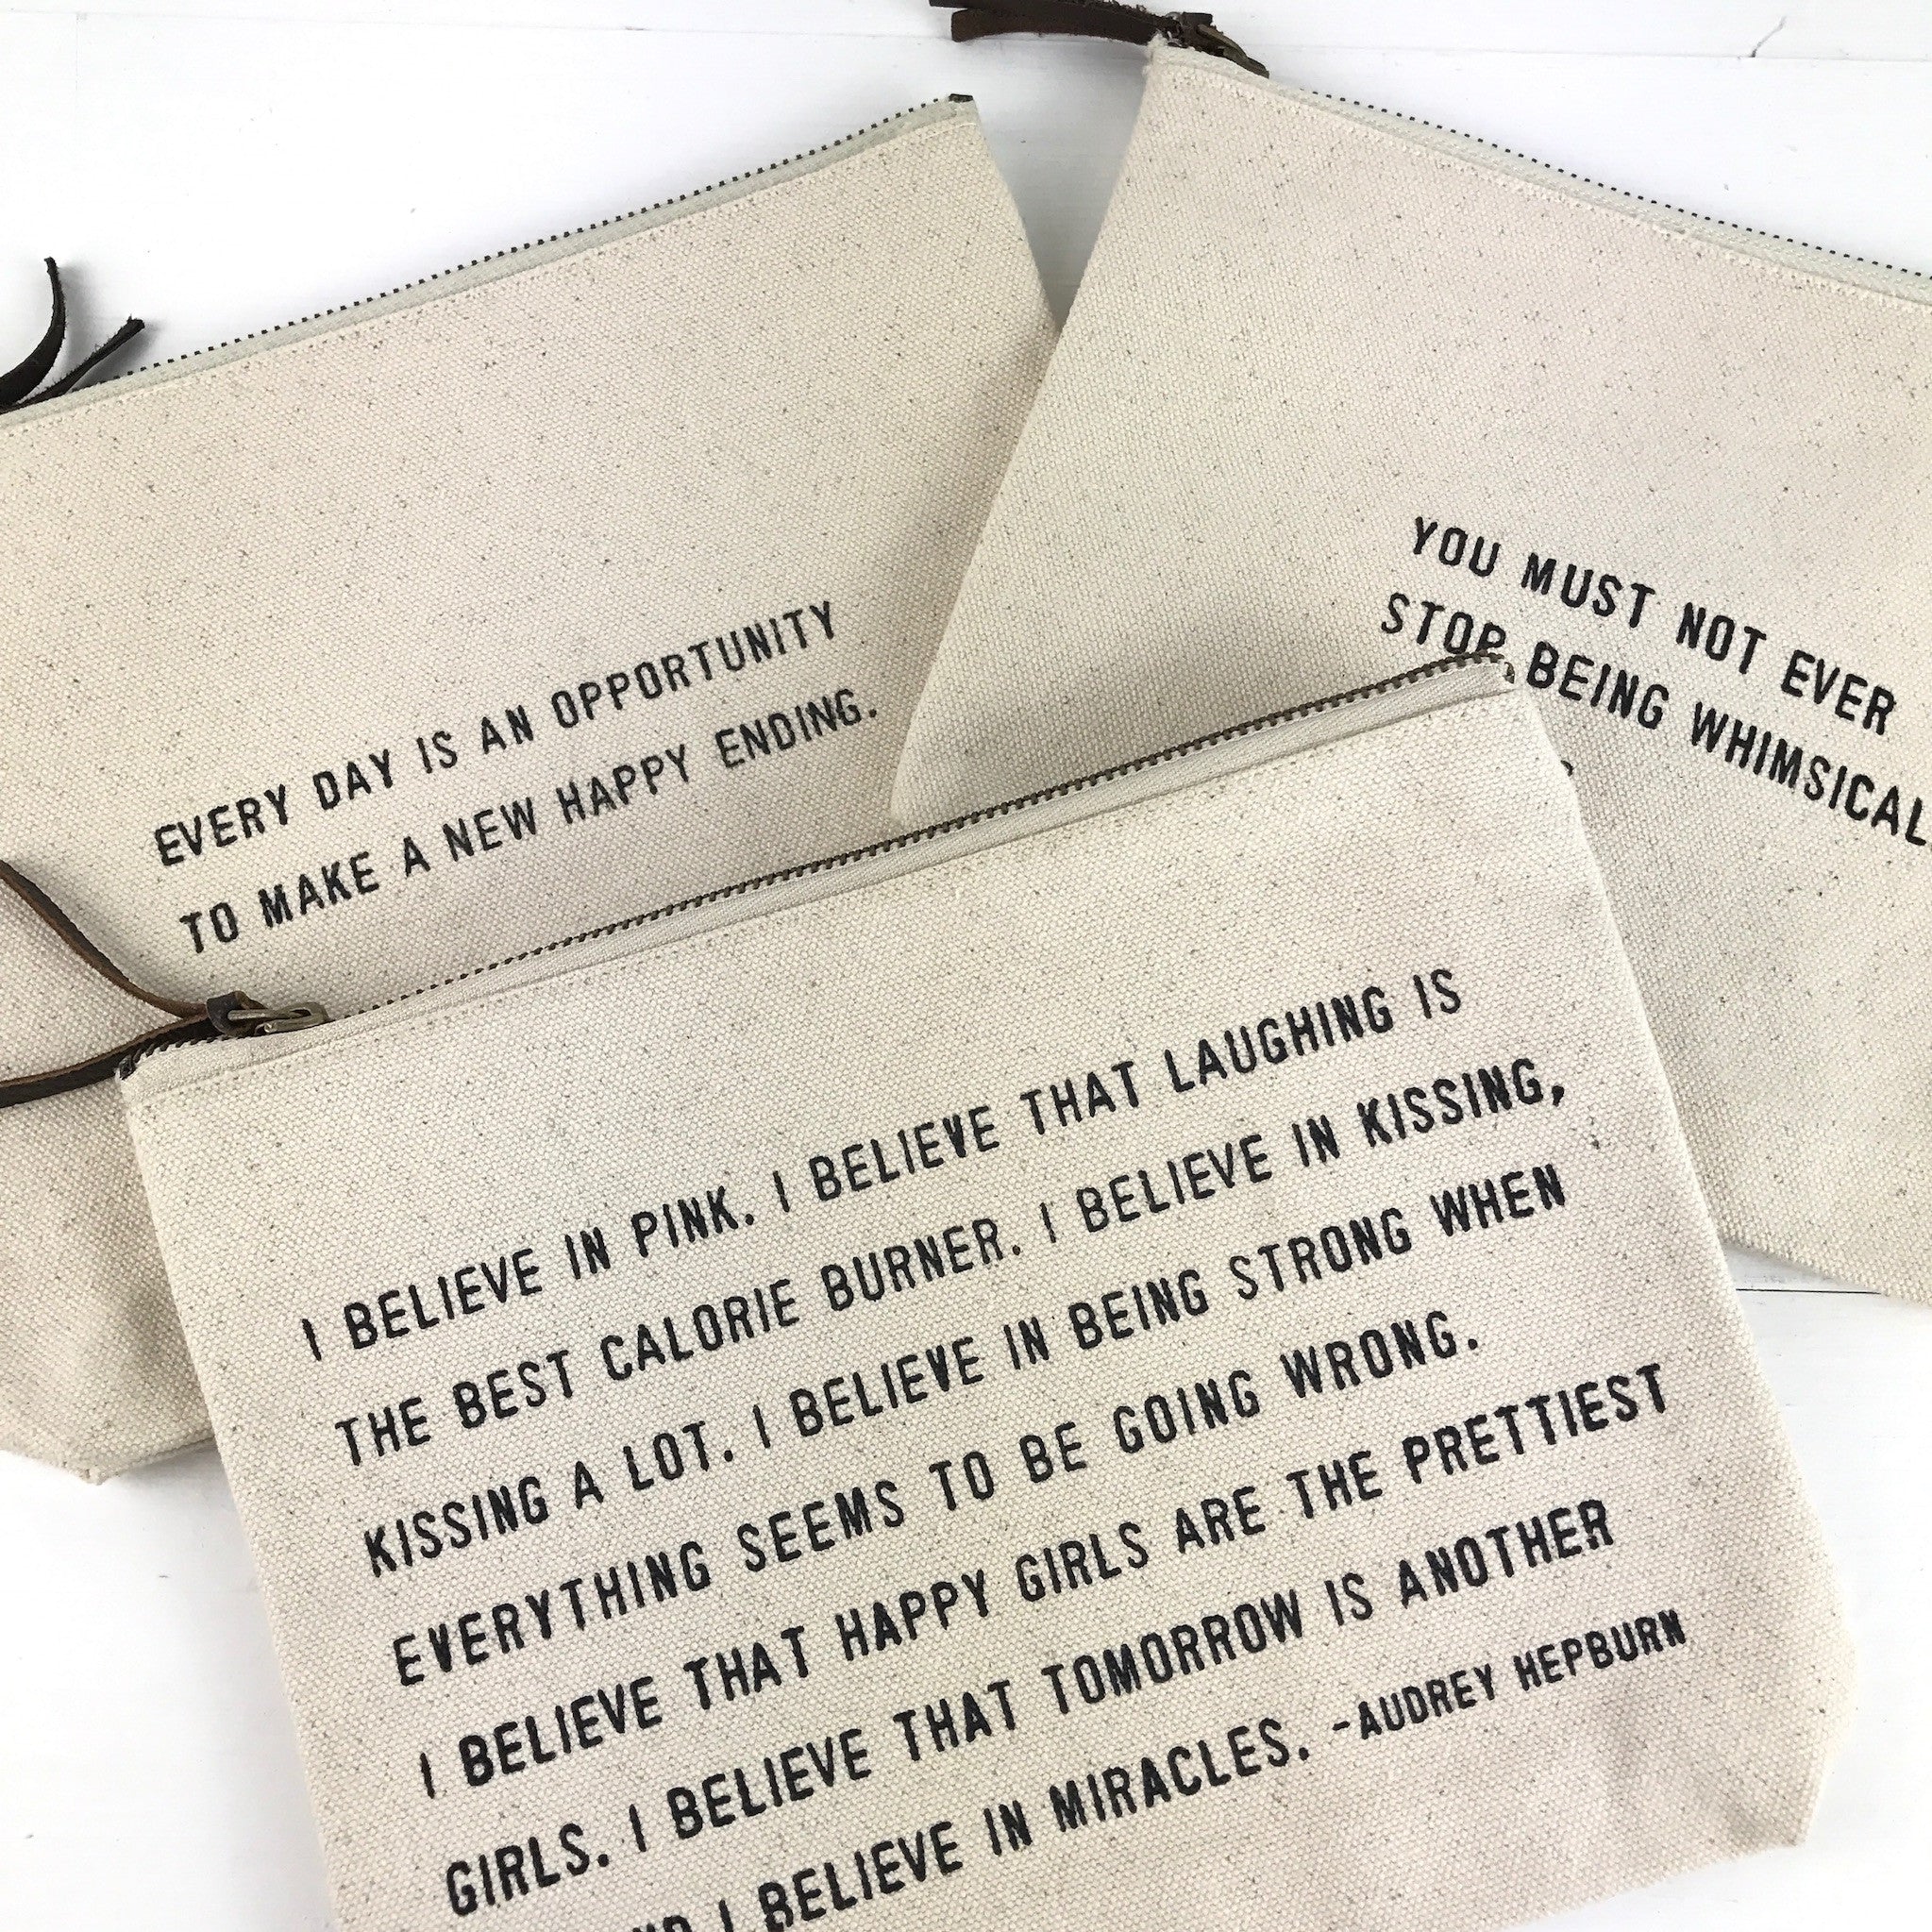 EVERY DAY IS AN OPPORTUNITY
TO MAKE A NEW HAPPY ENDING.
YOU MUST NOT EVER
STOP BEING WHIMSICAL
I BELIEVE IN PINK. I BELIEVE THAT LAUGHING IS
THE BEST CALORIE BURNER. I BELIEVE IN KISSING,
KISSING A LOT. I BELIEVE IN BEING STRONG WHEN
EVERYTHING SEEMS TO BE GOING WRONG.
I BELIEVE THAT HAPPY GIRLS ARE THE PRETTIEST
GIRLS. I BELIEVE THAT TOMORROW IS ANOTHER
I BELIEVE IN MIRACLES. -AUDREY HEPBURN